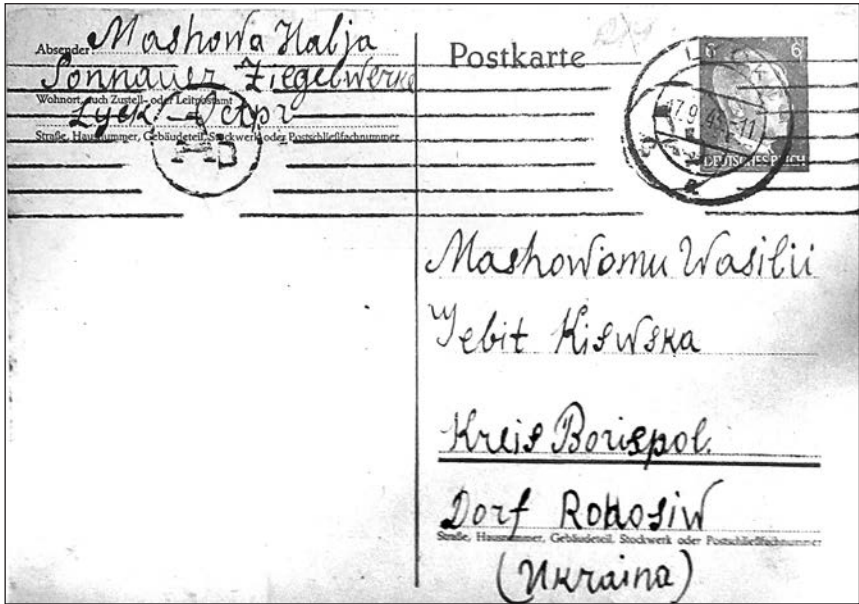 Absender
Mashowa Halja
Sonnauer Ziegelwerke
Wohnort, auch Zustell- oder Leitpostamt
Lyck – Octpr
Straße, Hausnummer, Gebäudeteil, Stockwerk oder Postschließfachnummer
Postkarte
6 6
DEUTSCHES REICH
Mashowomu Wasilii
Gebit Kiewska
Kreis Borispol.
Dorf Rohosiw
Straße, Hausnummer, Gebäudeteil, Stockwerk oder Postschließfachnummer
(Ukraina)